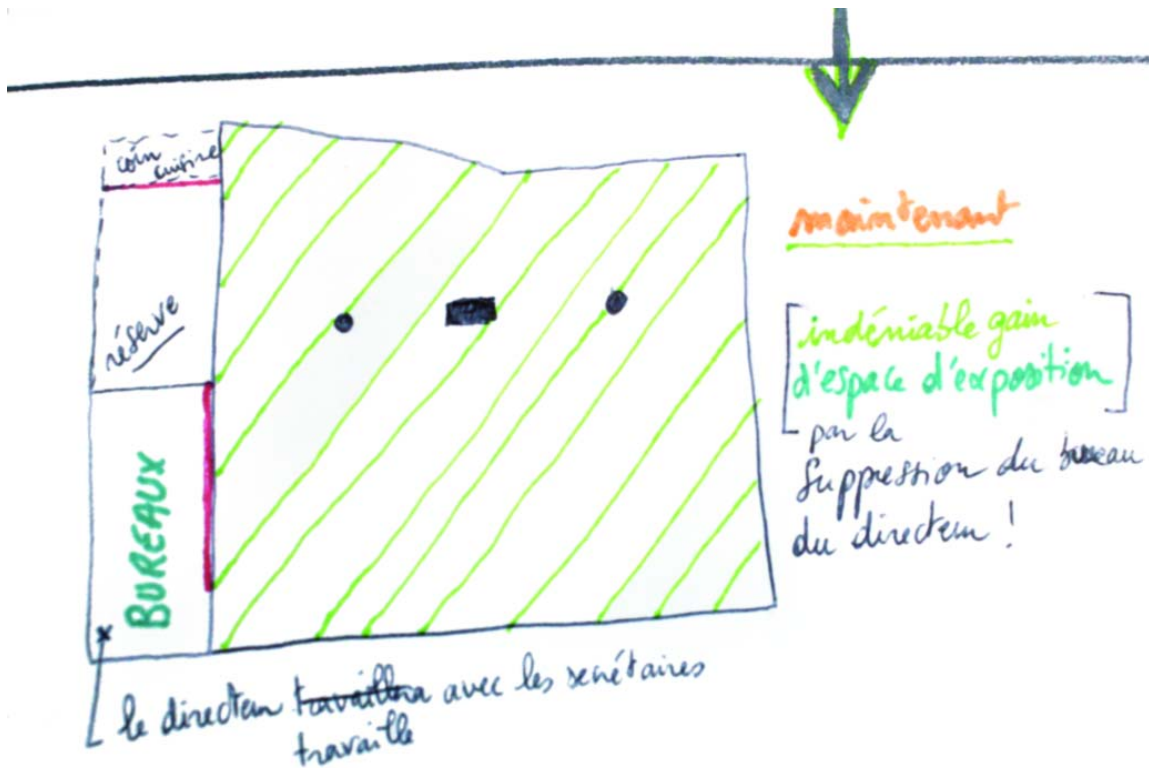 coin
cuisine
réserve
BUREAUX
maintenant
indéniable gain
d'espace d'exposition
par la
suppression du bureau
du directeur !
le directeur travaillera avec les secrétaires
travaille